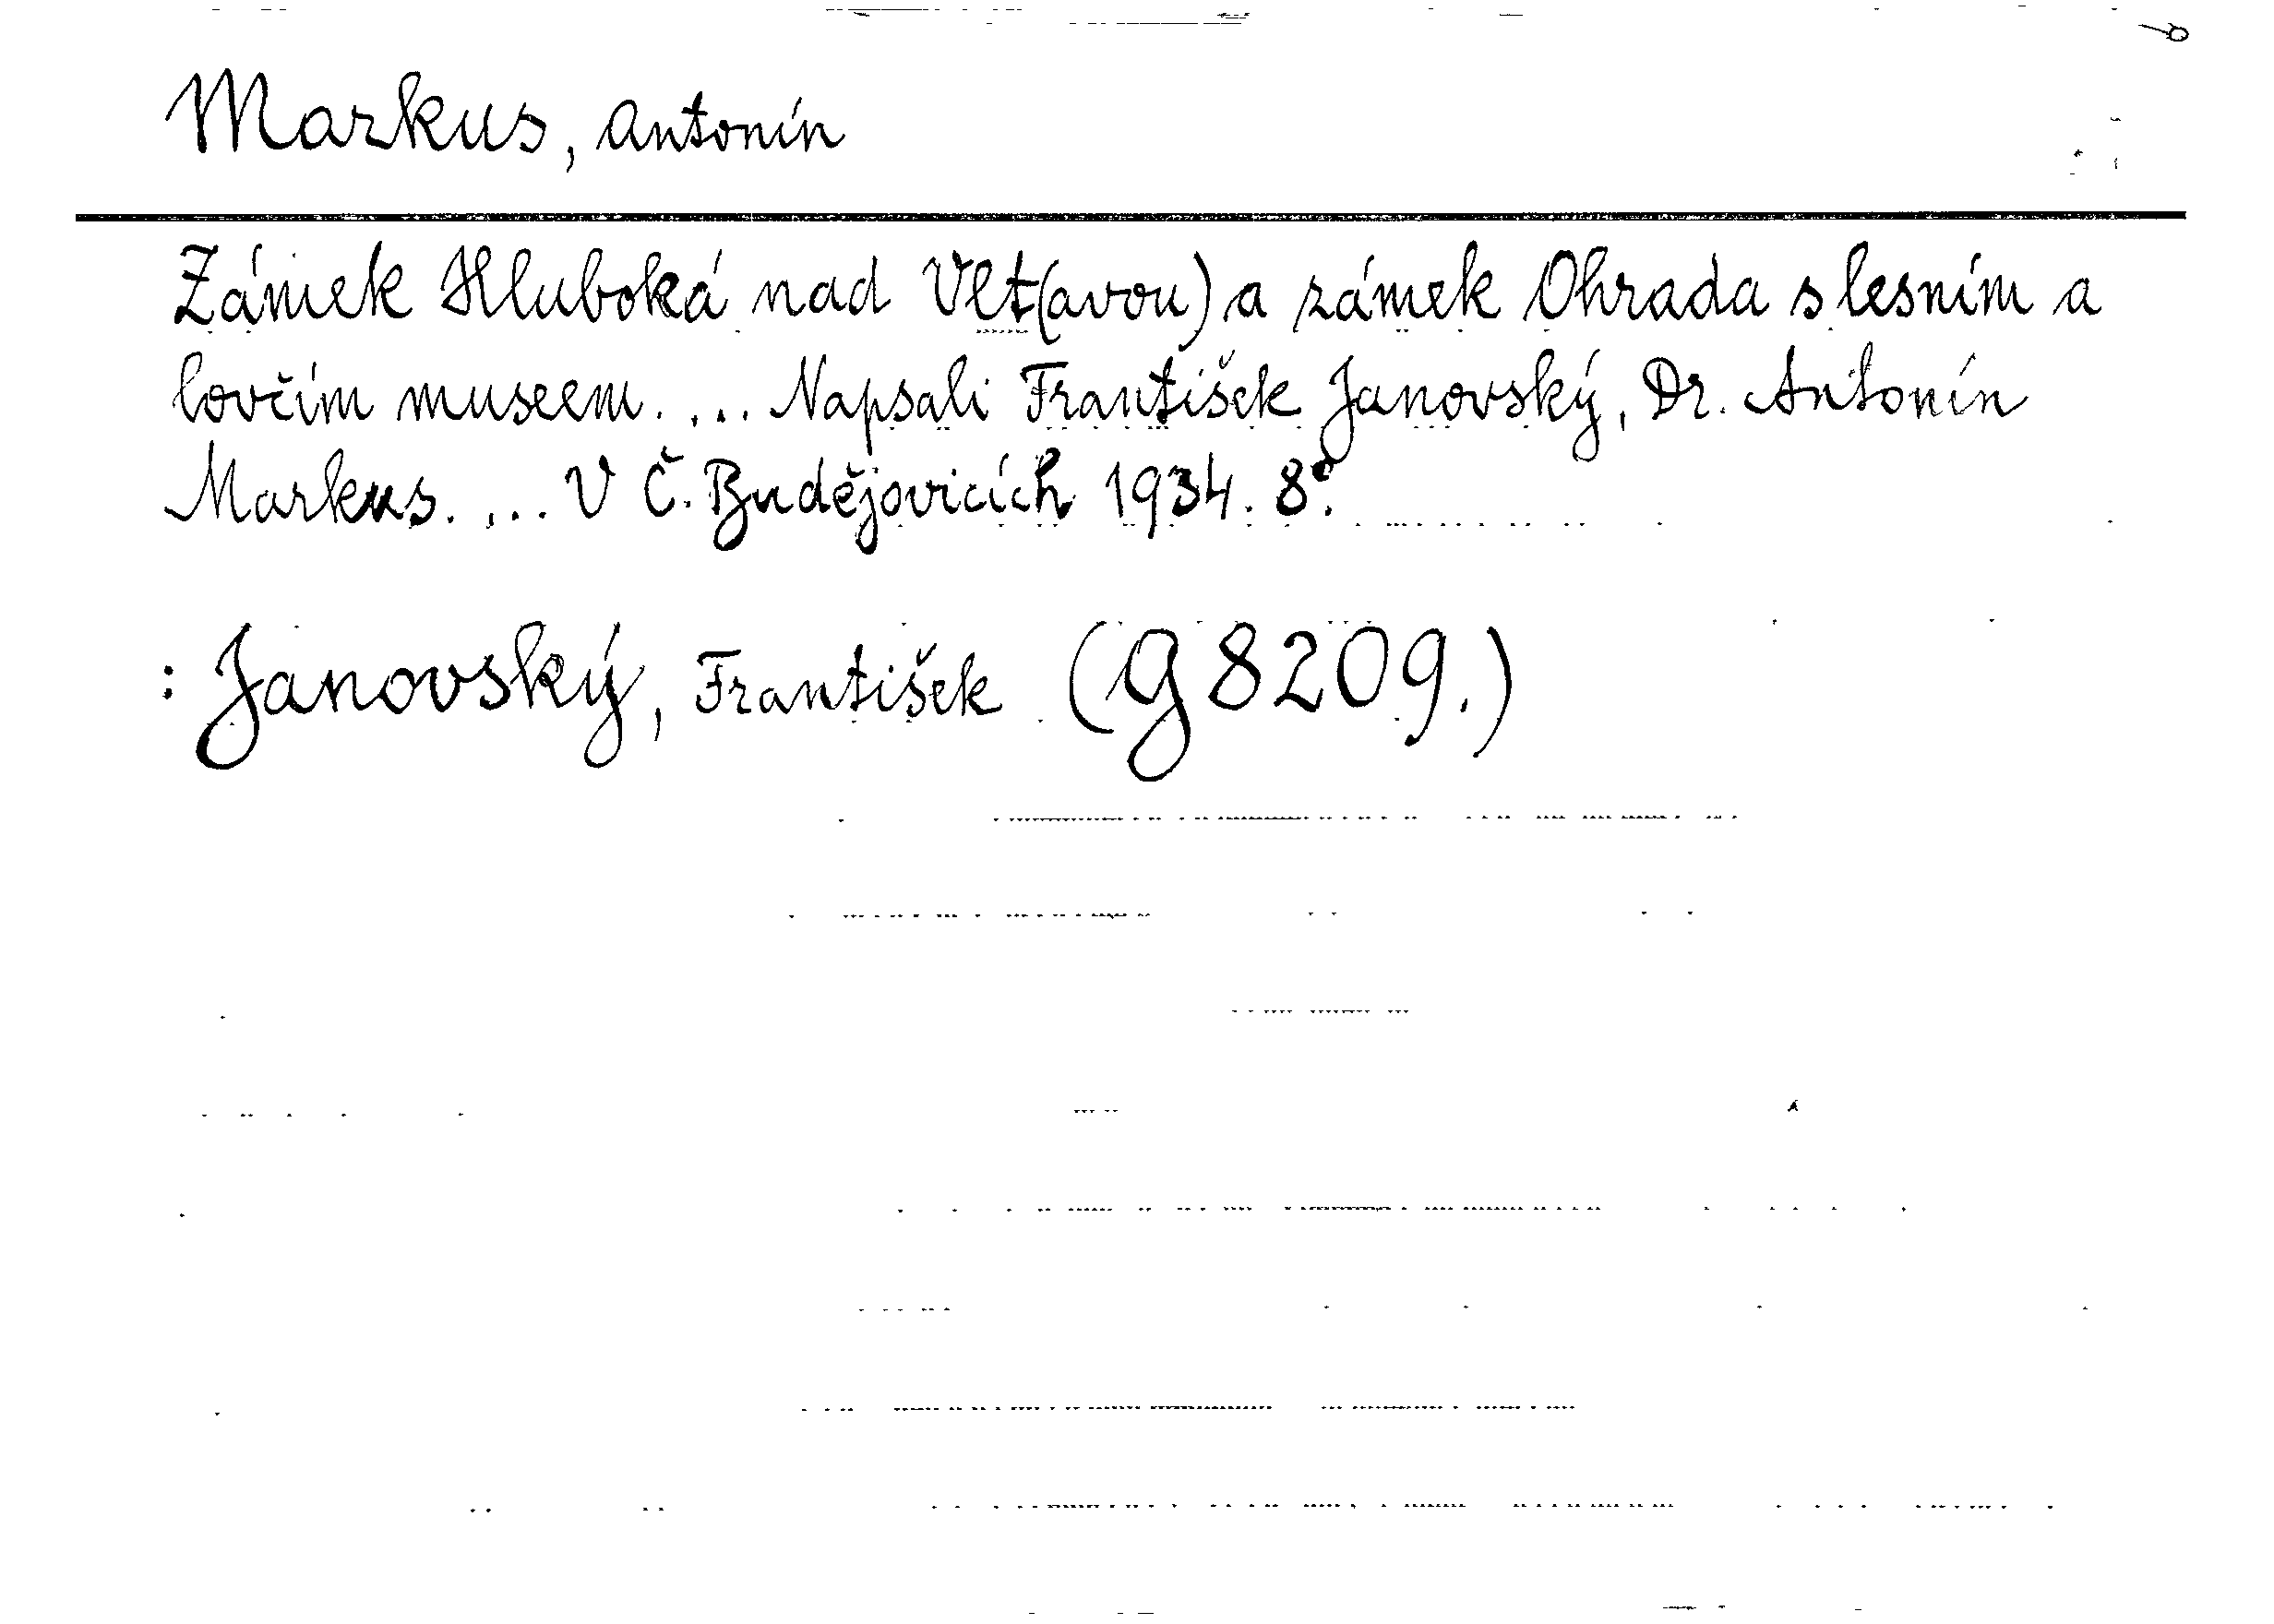 Markus, Antonín
Zámek Hluboká nad Vlt(avou) a zámek Ohrada s lesním a
lovčím museem. ... Napsali František Janovský, Dr. Antonín
Markus. ... V Č. Budějovicích 1934. 8°.
: Janovský, František (g 8209.)